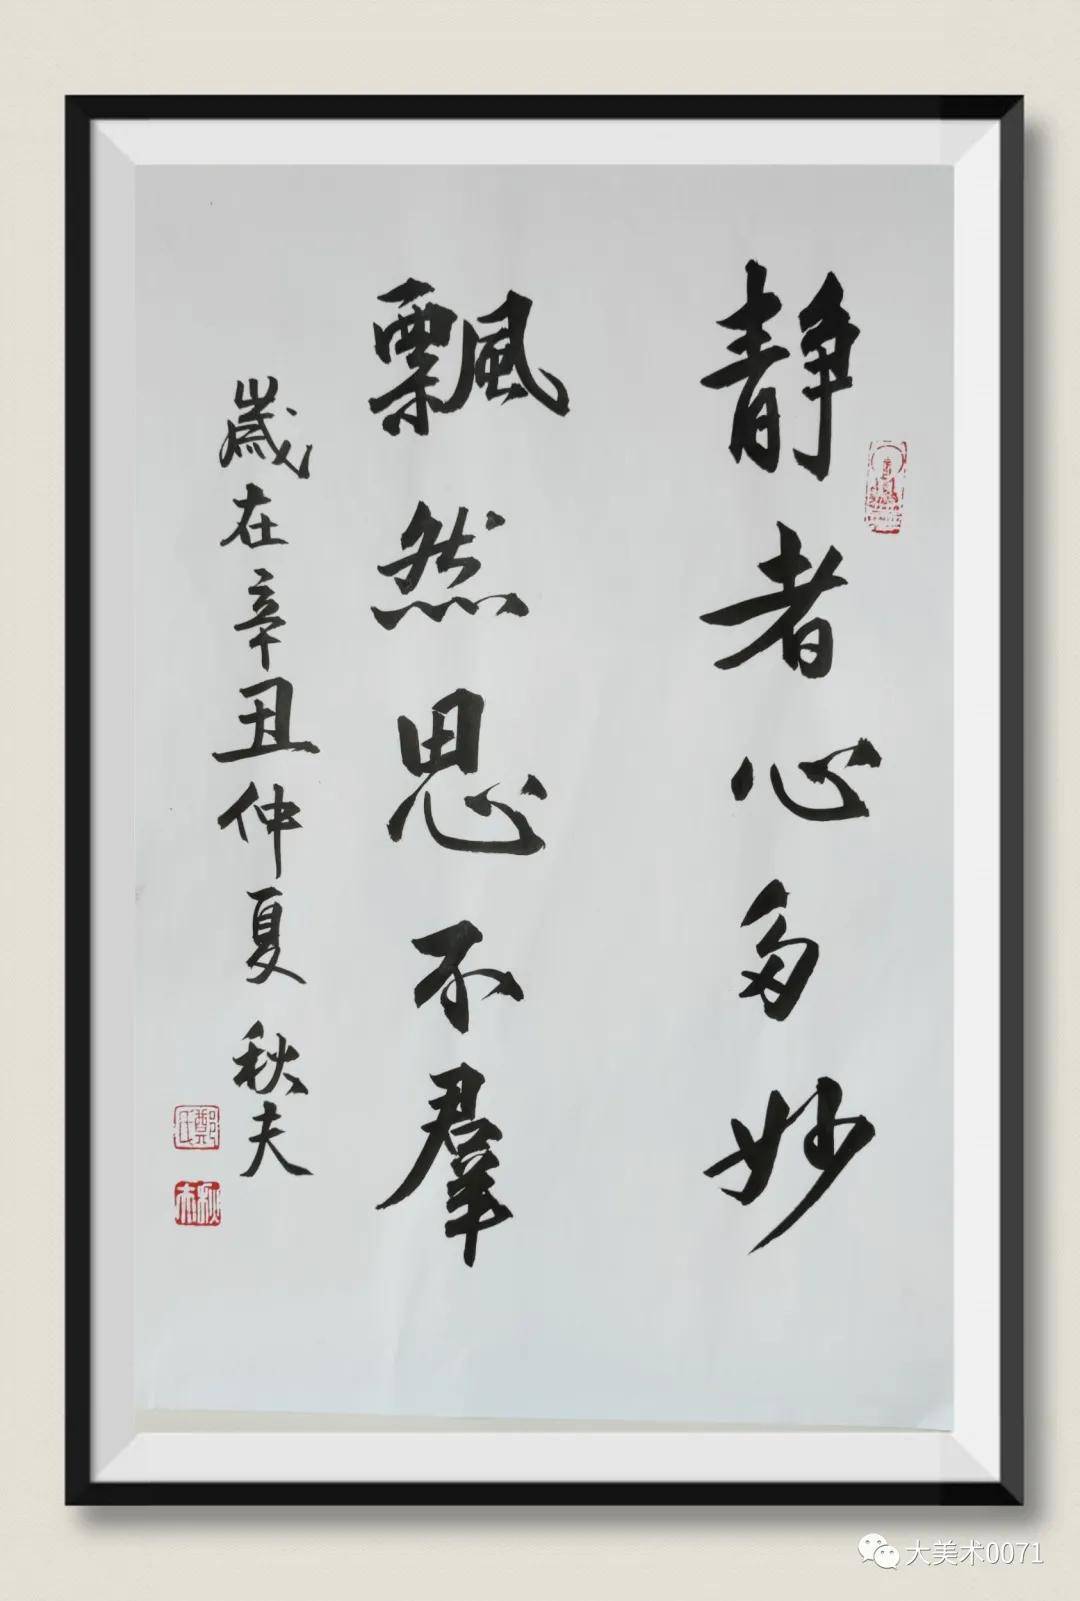 静者心多妙
飄然思不羣
歲在辛丑仲夏 秋夫
鄭氏
大美术0071